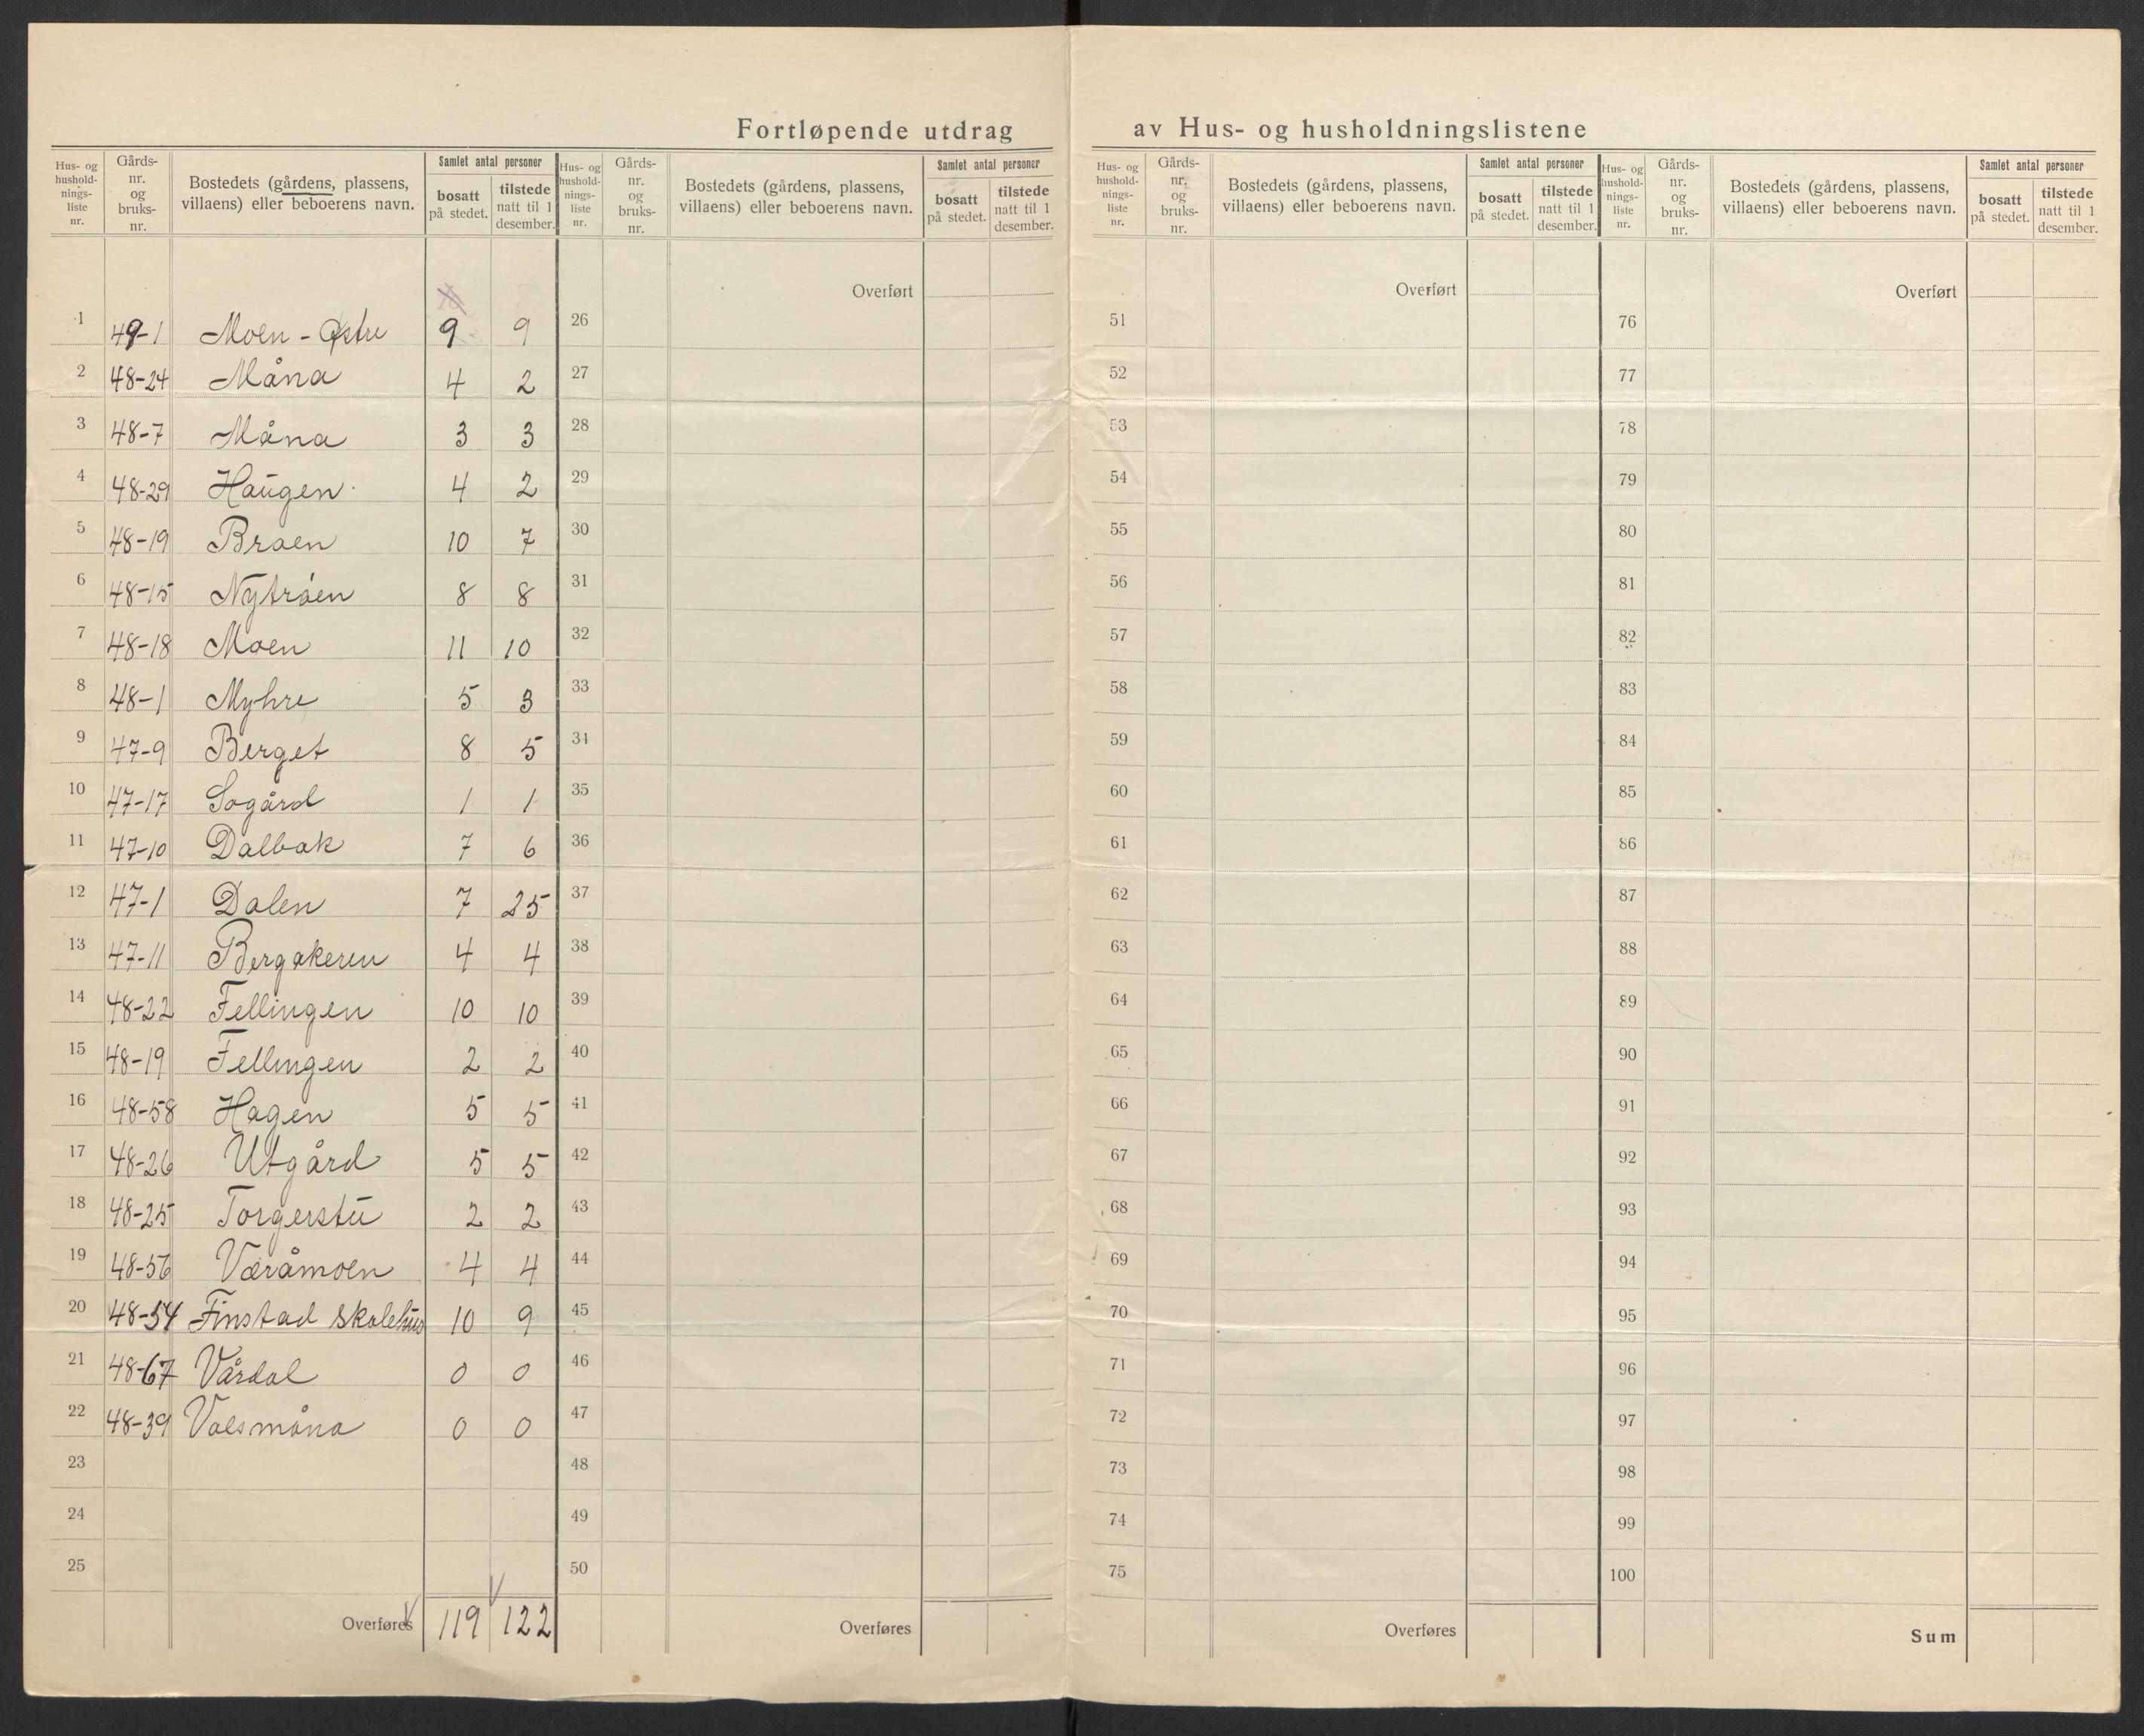 Fortløpende utdrag av Hus- og husholdningslistene
Hus- og hushold-nings-liste nr. | Gårds-nr. og bruks-nr. | Bostedets (gårdens, plassens, villaens) eller beboerens navn. | Samlet antal personer | bosatt på stedet. | tilstede natt til 1 desember.
1 49-1 Moen - Østre 9 9
2 48-24 Måna 4 2
3 48-7 Måna 3 3
4 48-29 Haugen 4 2
5 48-19 Braen 10 7
6 48-15 Nytrøen 8 8
7 48-18 Moen 11 10
8 48-1 Myhre 5 3
9 47-9 Berget 8 5
10 47-17 Sogård 1 1
11 47-10 Dalbak 7 6
12 47-1 Dalen 7 25
13 47-11 Bergakeren 4 4
14 48-22 Fellingen 10 10
15 48-19 Fellingen 2 2
16 48-58 Hagen 5 5
17 48-26 Utgård 5 5
18 48-25 Torgerstu 2 2
19 48-56 Væråmoen 4 4
20 48-54 Finstad skolehus 10 9
21 48-67 Vårdal 0 0
22 48-39 Valsmåna 0 0
23
24
25
Overføres 119 122
Hus- og hushold-nings-liste nr. | Gårds-nr. og bruks-nr. | Bostedets (gårdens, plassens, villaens) eller beboerens navn. | Samlet antal personer | bosatt på stedet. | tilstede natt til 1 desember.
Overført
26
27
28
29
30
31
32
33
34
35
36
37
38
39
40
41
42
43
44
45
46
47
48
49
50
Overføres
Hus- og hushold-nings-liste nr. | Gårds-nr. og bruks-nr. | Bostedets (gårdens, plassens, villaens) eller beboerens navn. | Samlet antal personer | bosatt på stedet. | tilstede natt til 1 desember.
Overført
51
52
53
54
55
56
57
58
59
60
61
62
63
64
65
66
67
68
69
70
71
72
73
74
75
Overføres
Hus- og hushold-nings-liste nr. | Gårds-nr. og bruks-nr. | Bostedets (gårdens, plassens, villaens) eller beboerens navn. | Samlet antal personer | bosatt på stedet. | tilstede natt til 1 desember.
Overført
76
77
78
79
80
81
82
83
84
85
86
87
88
89
90
91
92
93
94
95
96
97
98
99
100
Sum